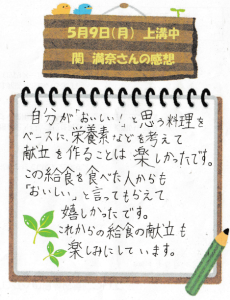 5月9日(月) 上溝中
関 満奈さんの感想
自分が「おいしい!」と思う料理を
ベースに、栄養素などを考えて
献立を作ることは楽しかったです。
この給食を食べた人からも
「おいしい」と言ってもらえて
嬉しかったです。
これからの給食の献立も
楽しみにしています。